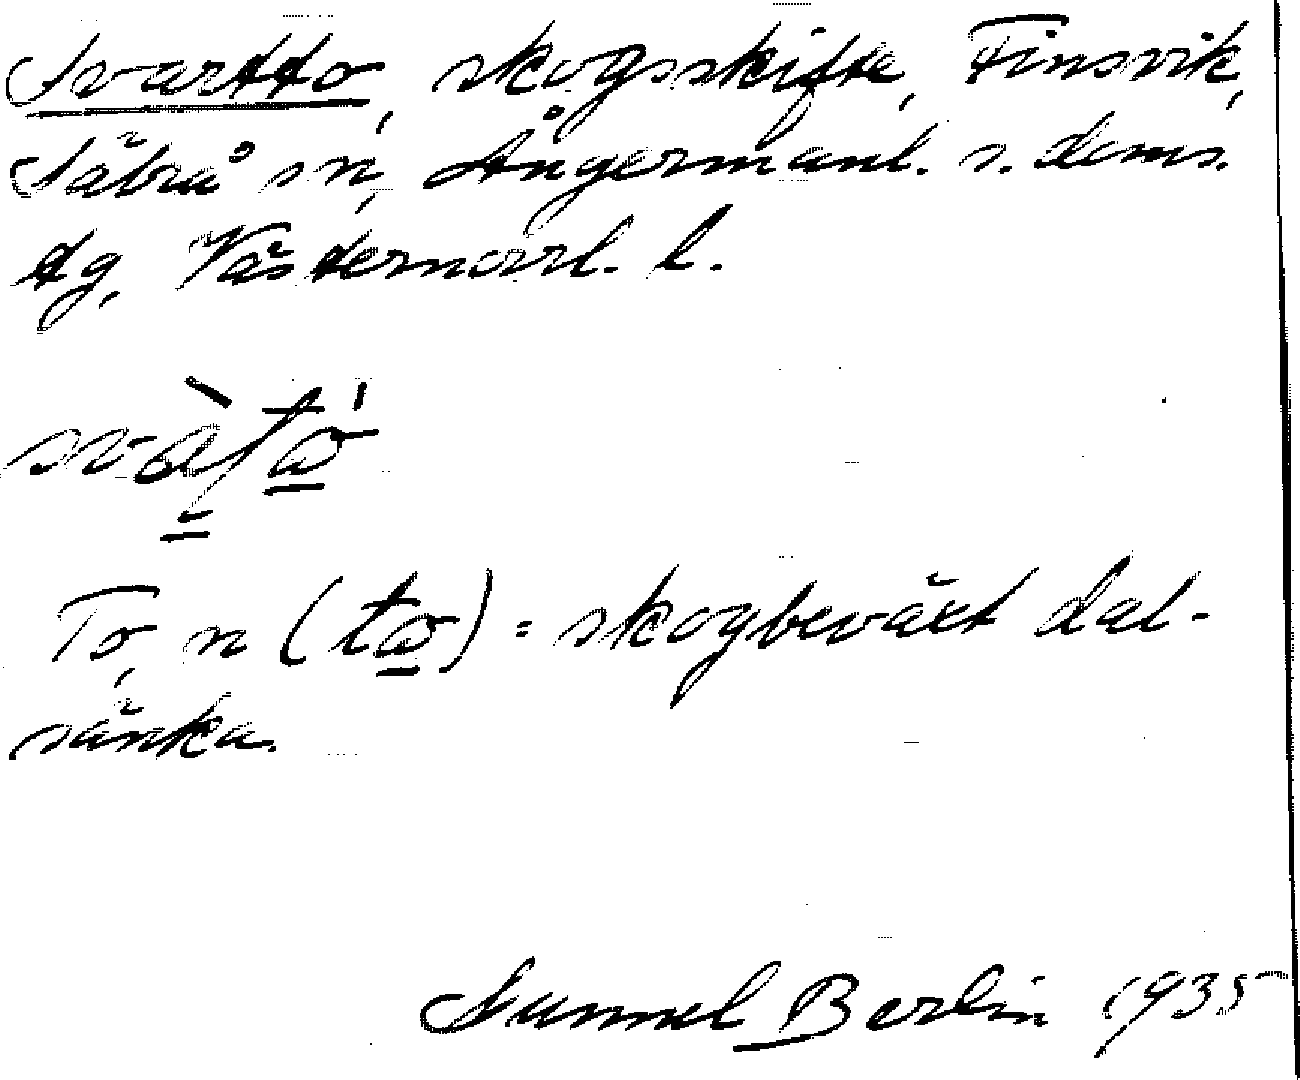 Svartto, skogsskifte, Finsvik,
Säbrå sn, Ångermanl. s. doms.
tg, Västernorrl. l.
To, n (tω) = skogbeväxt dal-
sänka.
Gunnel Berlin 1935